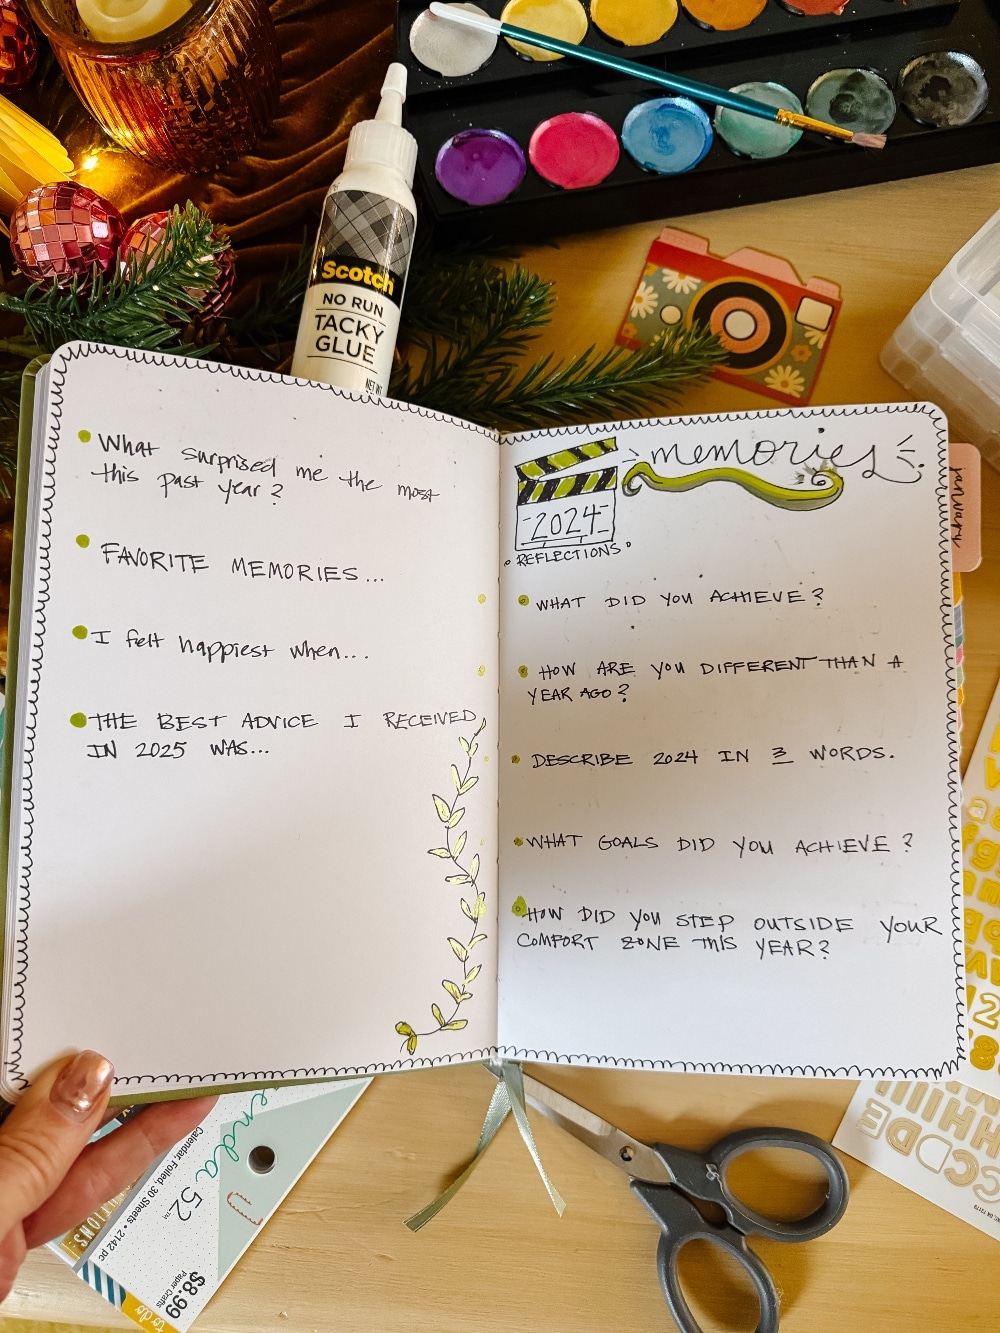 Scotch
NO RUN
TACKY
GLUE
NET WT
What surprised me the most
this past year?
FAVORITE MEMORIES...
I felt happiest when...
THE BEST ADVICE I RECEIVED
IN 2025 WAS...
memories
2024
REFLECTIONS
WHAT DID YOU ACHIEVE?
HOW ARE YOU DIFFERENT THAN A
YEAR AGO?
DESCRIBE 2024 IN 3 WORDS.
WHAT GOALS DID YOU ACHIEVE?
HOW DID YOU STEP OUTSIDE YOUR
COMFORT ZONE THIS YEAR?
january
enda 52™
Calendar, Foiled, 30 Sheets • 2142 pc
Paper Crafts
$8.99
to do